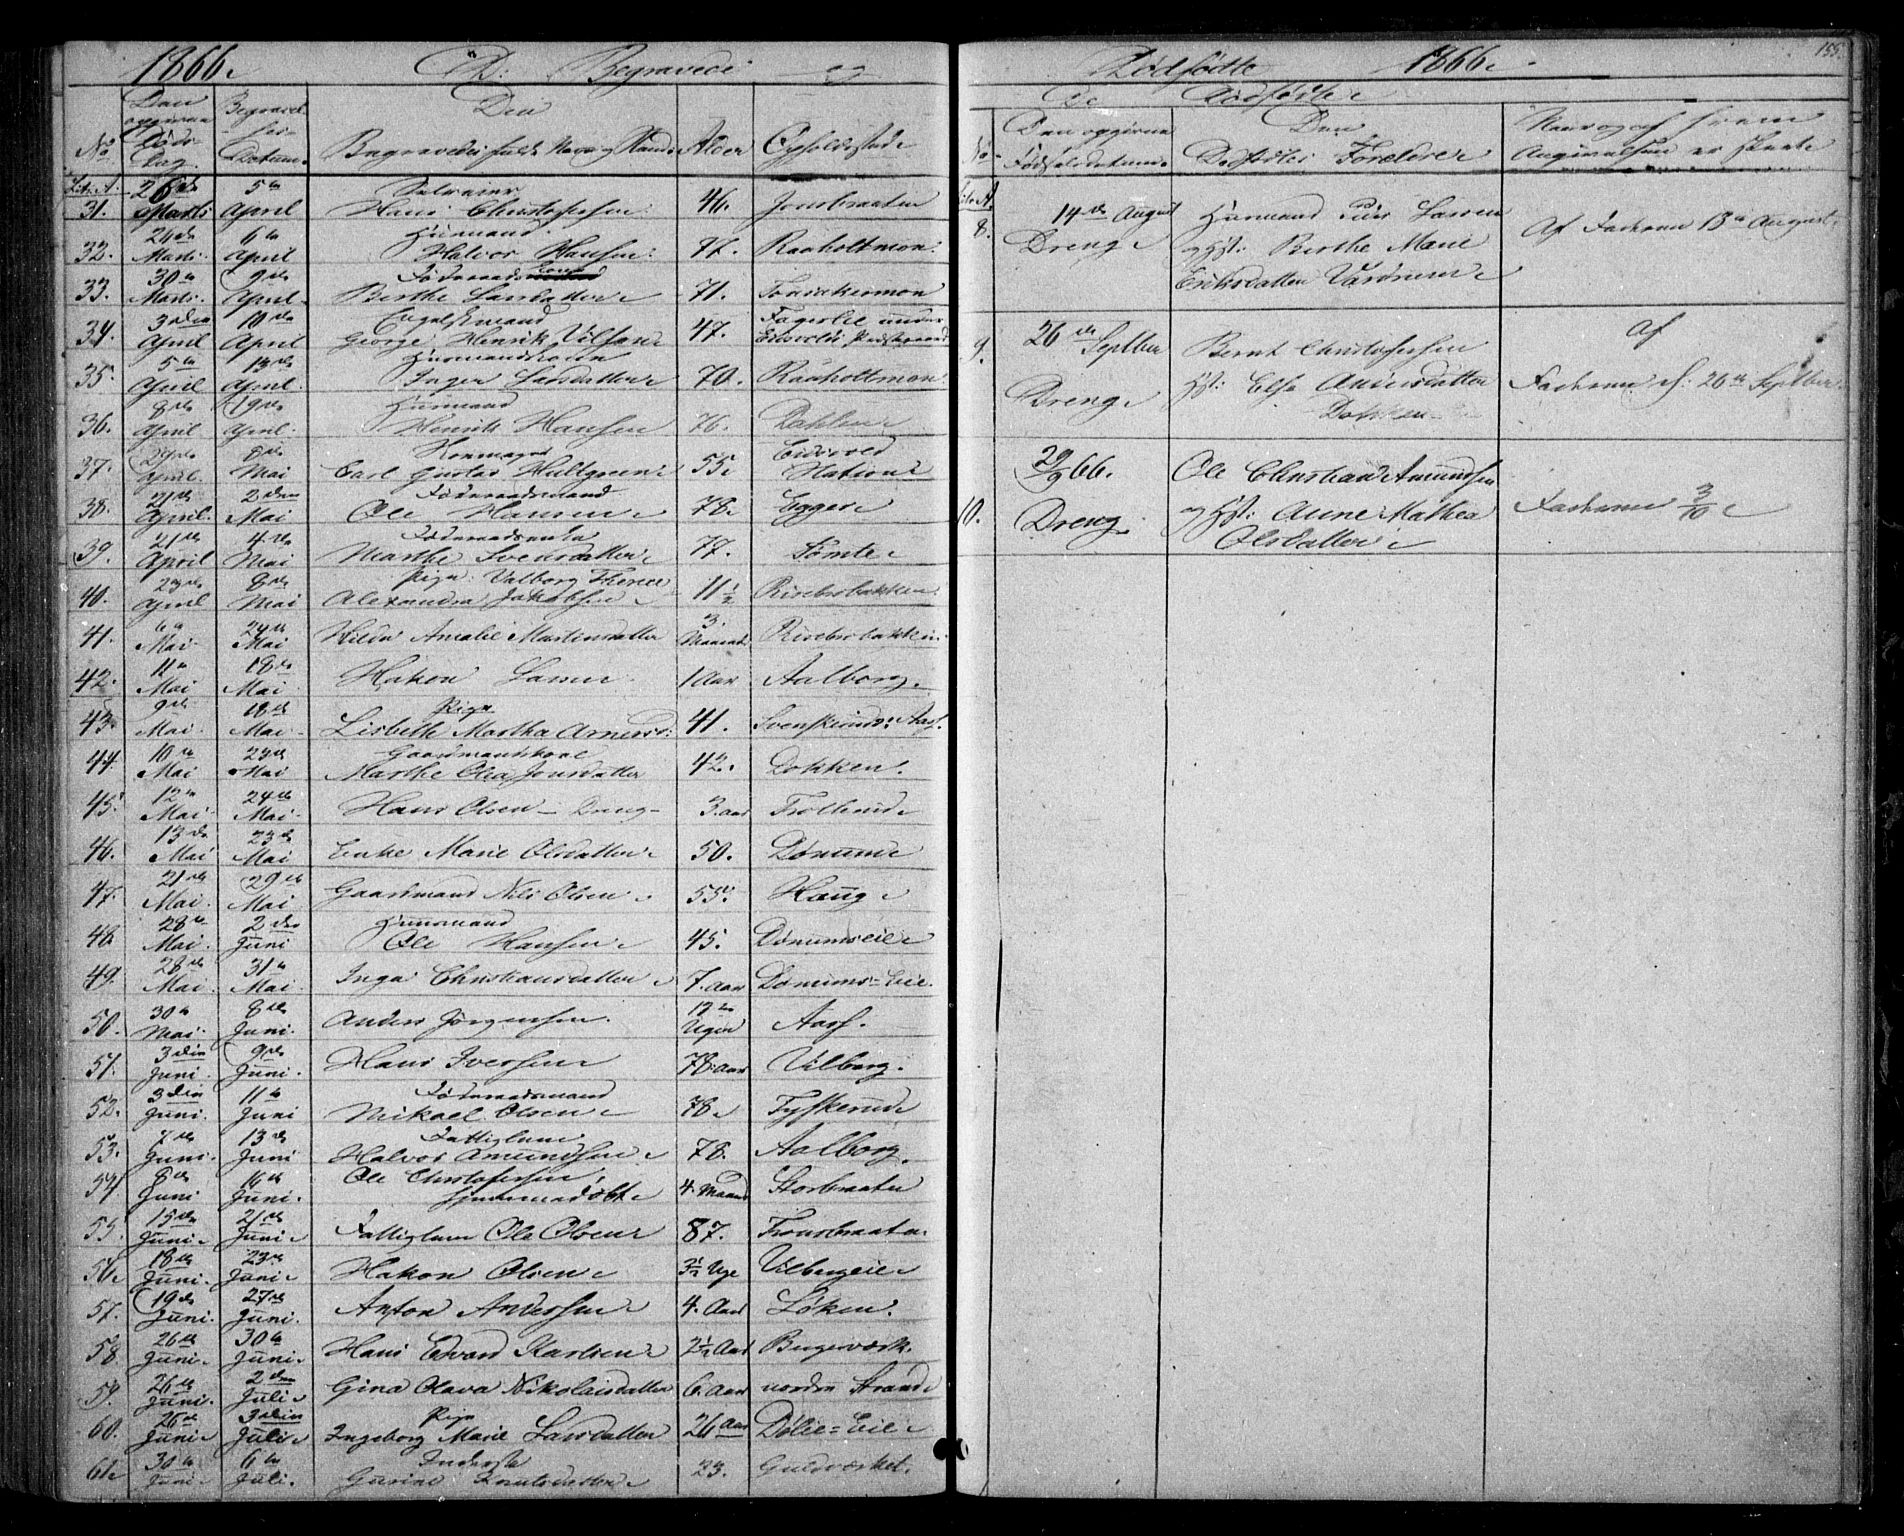 1866. De Begravede og
No
Den opgivne Døds Dag.
Begravelses Datum.
Den Begravedes fulde Navn og Stand
Alder
Opholdsstad
Litr. A.
31. 26de Marts 5te April Selveier Hans Christophersen 46. Jonsbraaten
32. 24de Marts 6te April Huusmand Halvor Hansen 77. Raaholtmon
33. 30te Marts 9de April Føderaads Berthe Larsdatter 71.
34. 3die April 10de April Engelskmand George Henrik Vilson 47. Fagerlie under Eidsvolds Præstegaard
35. 5te April 13de April Huusmandskone Inger Larsdatter 70. Raaholtmon
36. 8de April 19de April Huusmand Henrik Hansen 76. Dahlen
37. April 8de Mai Carl Gustav Hultgreen 55 Eidsvold Station
38. 21de April 2den Mai Føderaadsmand Ole Hansen 78 Egger
39. 21de April 4de Mai Føderaadsenke Marthe Svensdatter 77. Tømte
40. 23de April 8de Mai Pige Valborg Therese Alexandra Jakobsen 11 1/2 Risebrobakken
41. 6te Mai 24de Mai Hilda Amalie Martinsdatter 3 Maaned Risebrobakken
42. 11te Mai 18de Mai Haken Larsen 1 Aar Aalborg
43. 9de Mai 18de Mai Pige Lisbeth Martha Arnesd: 41. Aas
44. 10de Mai 23de Mai Gaardmandskone Marthe Olea Jonsdatter 42. Dokken.
45. 12te Mai 24de Mai Hans Olsen - Dreng - 3. aar Trollerud
46. 13de Mai 23de Mai Enke Marie Olsdatter 50. Dønum
47. 21de Mai 29de Mai Gaardmand Nils Olsen 55. Haug
48. 28de Mai 2den Juni Huusmand Ole Hansen 45. Dønumseie
49. 28de Mai 31te Mai Inga Christiansdatter 7. aar Dønums-Eie.
50. 30te Mai 8de Juni Anders Jørgensen. Uger Aas.
51. 3die Juni 9de Juni Hans Iversen 78. aar Vilberg.
52. 3die Juni 11te Juni Føderaadsmand Mikael Olsen 78 Tyskerud
53. 7de Juni 13de Juni Fattiglem Halvor Amundsen 78. Aalborg.
54. 8de Juni 16de Juni Ole Christofersen, hjemmedøbt 4. Maaned Storbraaten
55. 15de Juni 21de Juni Fattiglem Ole Olsen 87. Tronsbraaten
56. 18de Juni 23de Juni Hakon Olsen 3 1/2 Uge Vilbergeie
57. 19de Juni 27de Juni Anton Andersen 4. Aar Løken.
58. 26de Juni 30te Juni Hans Edvard Karlsen 2 1/2 Aar
59. 26de Juni 2den Juli Gina Olava Nikolaisdatter 6. Aar nordre Strand
60. 26de Juni 3die Juli Pige Ingeborg Marie Larsdatter 26 Aar Dølie-Eie
61. 30te Juni 6te Juli Inderste Gurine Knutsdatter 23. Guldværket.
155.
Dødfødte 1866.
De Dødfødte
No
Den opgivne Fødselsdatum
Den Dødfødtes Forældre
Naar og af hvem Angivelsen er skeet
Litr. A.
8. 14de August Dreng
Huusmand Peder Larsen
og Hst: Berthe Marie
Eriksdatter
Af Faderen August
9. 26de Septber Dreng
Bernt Christophersen
Hst: Else Andersdatter
Dokken
Af Faderen d: 26de Septber
10. 29/9 66. Dreng.
Ole Christian Amundsen
og Hst: Anne Mathea
Olsdatter
Faderen 3/10